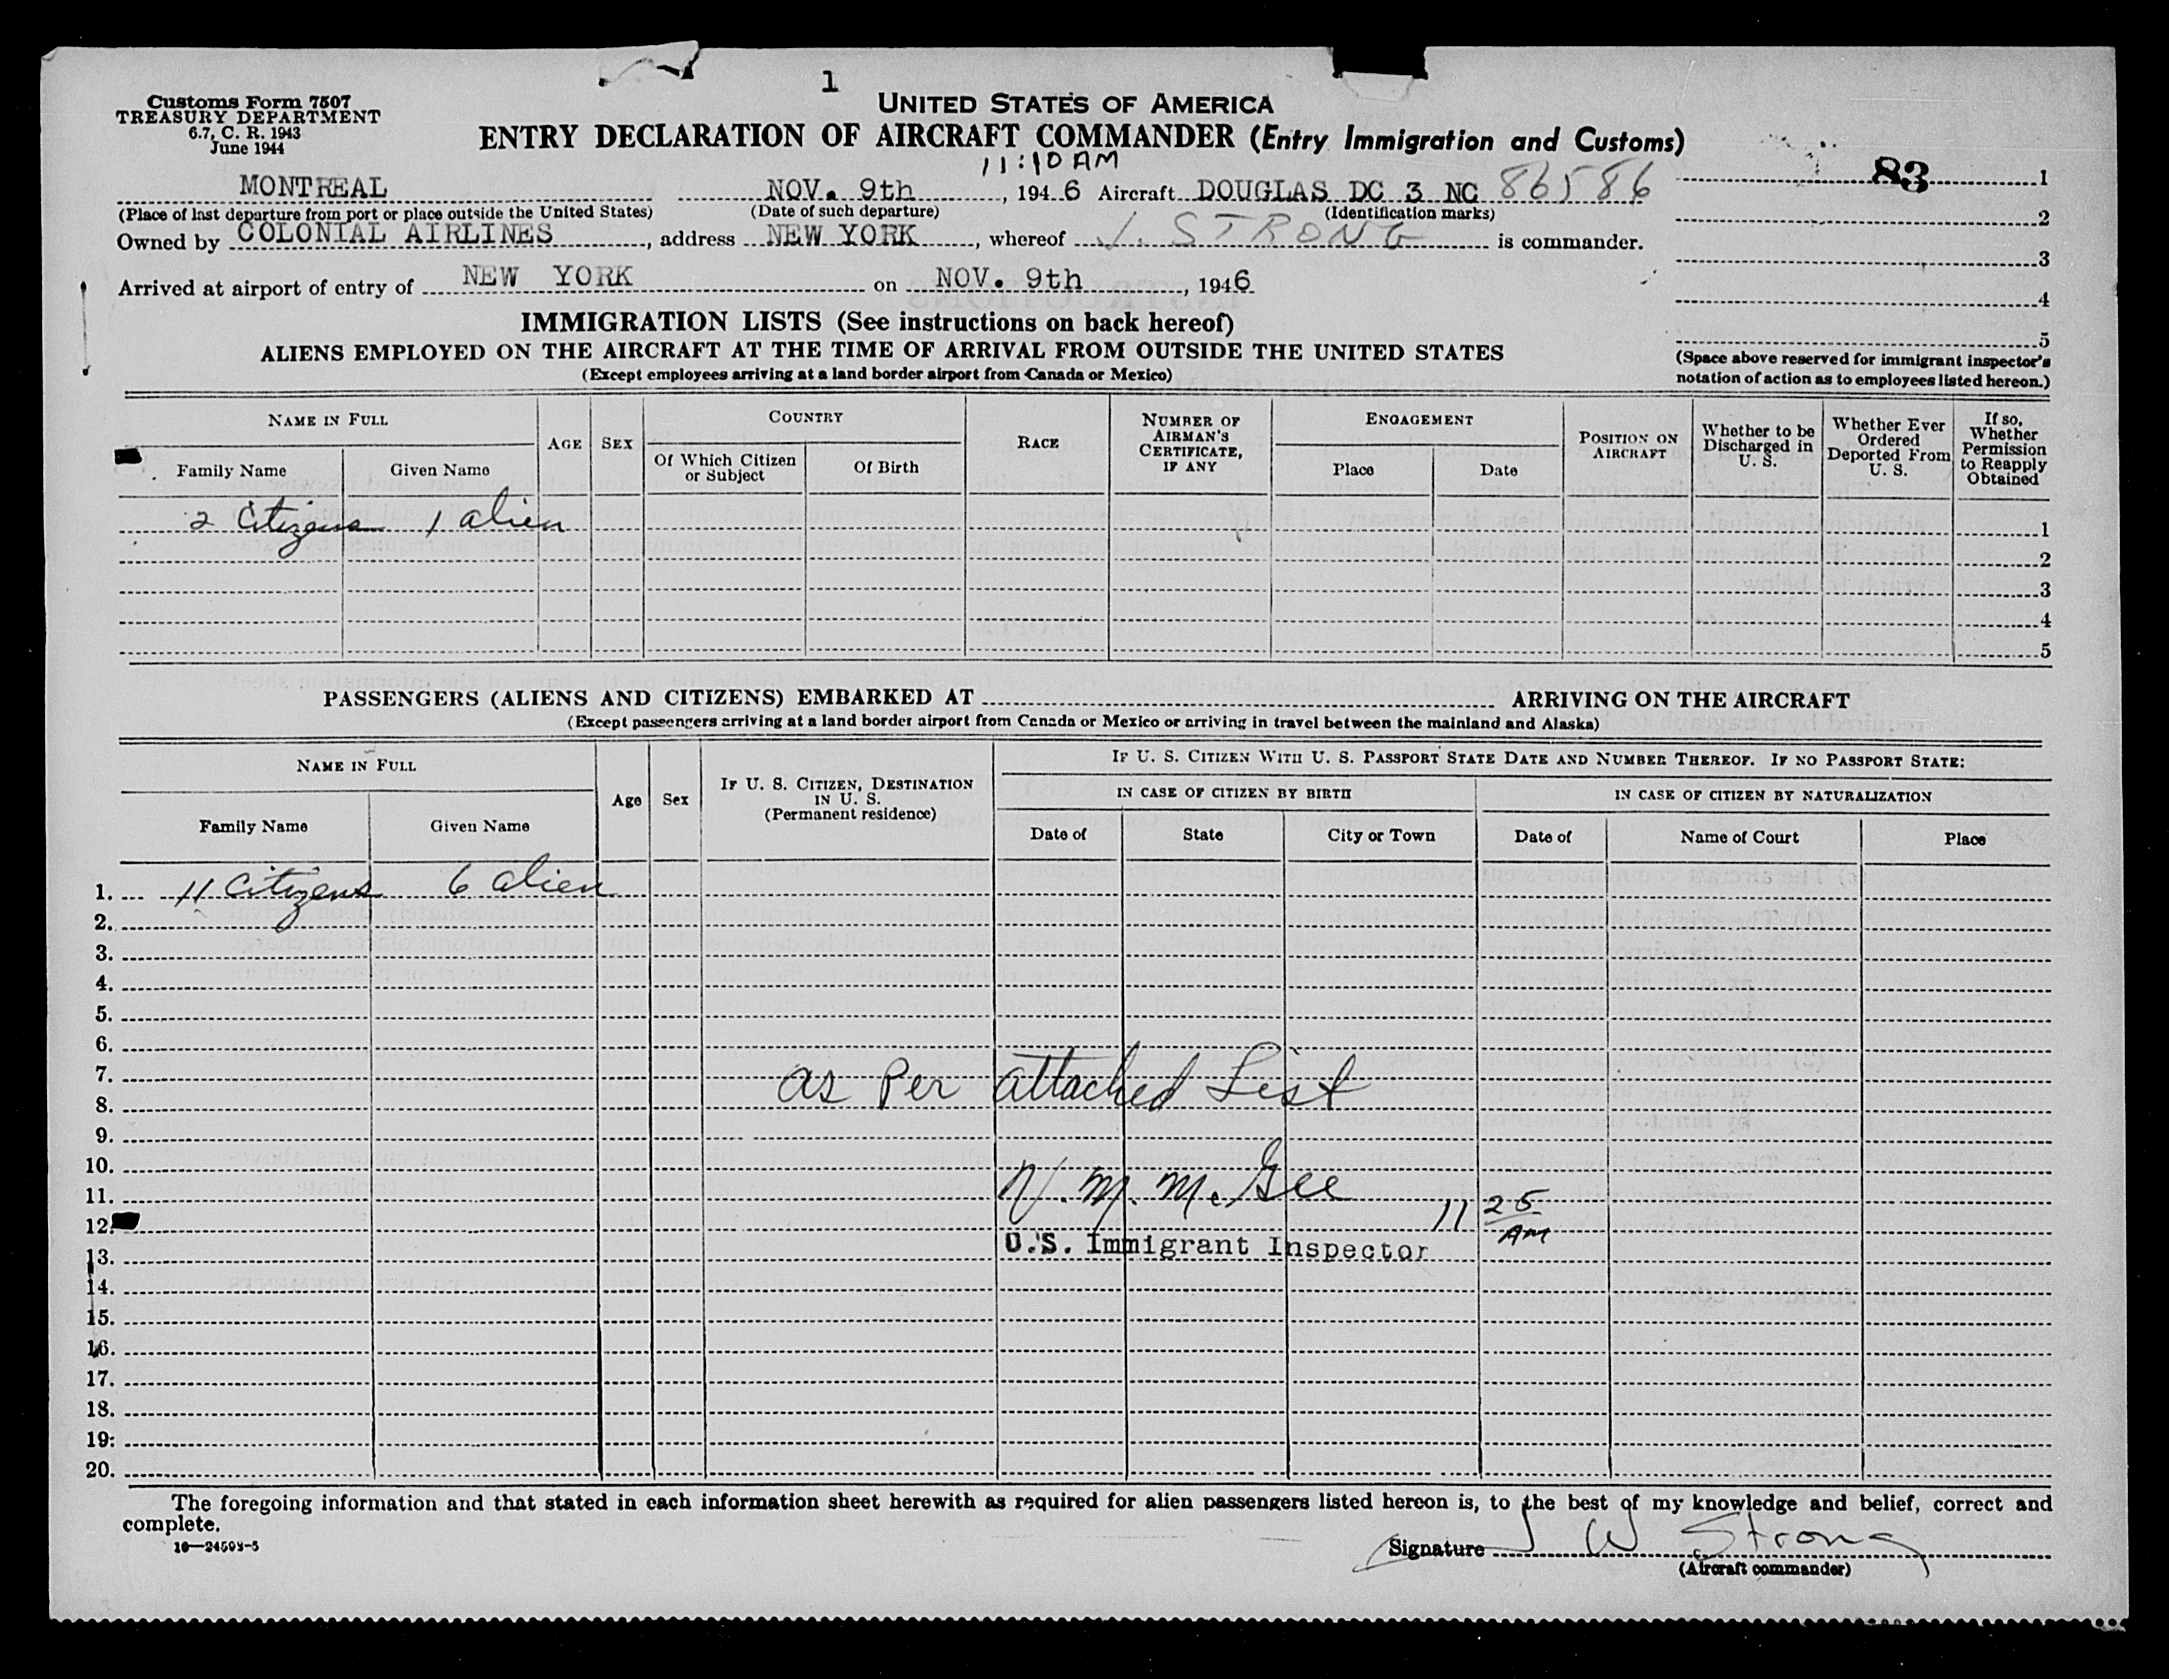 1
Customs Form 7507
TREASURY DEPARTMENT
6.7, C. R. 1943
June 1944
UNITED STATES OF AMERICA
ENTRY DECLARATION OF AIRCRAFT COMMANDER (Entry Immigration and Customs)
11:10 AM
83 1
MONTREAL NOV. 9th, 1946 Aircraft DOUGLAS DC 3 NC 86586
(Place of last departure from port or place outside the United States) (Date of such departure) (Identification marks)
2
Owned by COLONIAL AIRLINES, address NEW YORK, whereof J. STRONG is commander.
3
Arrived at airport of entry of NEW YORK on NOV. 9th, 1946
4
IMMIGRATION LISTS (See instructions on back hereof)
5
ALIENS EMPLOYED ON THE AIRCRAFT AT THE TIME OF ARRIVAL FROM OUTSIDE THE UNITED STATES
(Except employees arriving at a land border airport from Canada or Mexico)
(Space above reserved for immigrant inspector's
notation of action as to employees listed hereon.)
NAME IN FULL
Family Name Given Name
AGE
SEX
COUNTRY
Of Which Citizen or Subject
Of Birth
RACE
NUMBER OF AIRMAN'S CERTIFICATE, IF ANY
ENGAGEMENT
Place Date
POSITION ON AIRCRAFT
Whether to be Discharged in U. S.
Whether Ever Ordered Deported From U. S.
If so, Whether Permission to Reapply Obtained
2 Citizens 1 alien 1
2
3
4
5
PASSENGERS (ALIENS AND CITIZENS) EMBARKED AT ARRIVING ON THE AIRCRAFT
(Except passengers arriving at a land border airport from Canada or Mexico or arriving in travel between the mainland and Alaska)
NAME IN FULL
Family Name Given Name
Age
Sex
IF U. S. CITIZEN, DESTINATION IN U. S.
(Permanent residence)
IF U. S. CITIZEN WITH U. S. PASSPORT STATE DATE AND NUMBER THEREOF. IF NO PASSPORT STATE:
IN CASE OF CITIZEN BY BIRTH
Date of State City or Town
IN CASE OF CITIZEN BY NATURALIZATION
Date of Name of Court Place
1. 11 Citizens 6 alien
2.
3.
4.
5.
6.
7. as Per attached List
8.
9.
10.
11. N. M. McGee 11 25 AM
12.
13. U.S. Immigrant Inspector
14.
15.
16.
17.
18.
19.
20.
The foregoing information and that stated in each information sheet herewith as required for alien passengers listed hereon is, to the best of my knowledge and belief, correct and
complete.
16—24598-5
Signature J W Strong
(Aircraft commander)